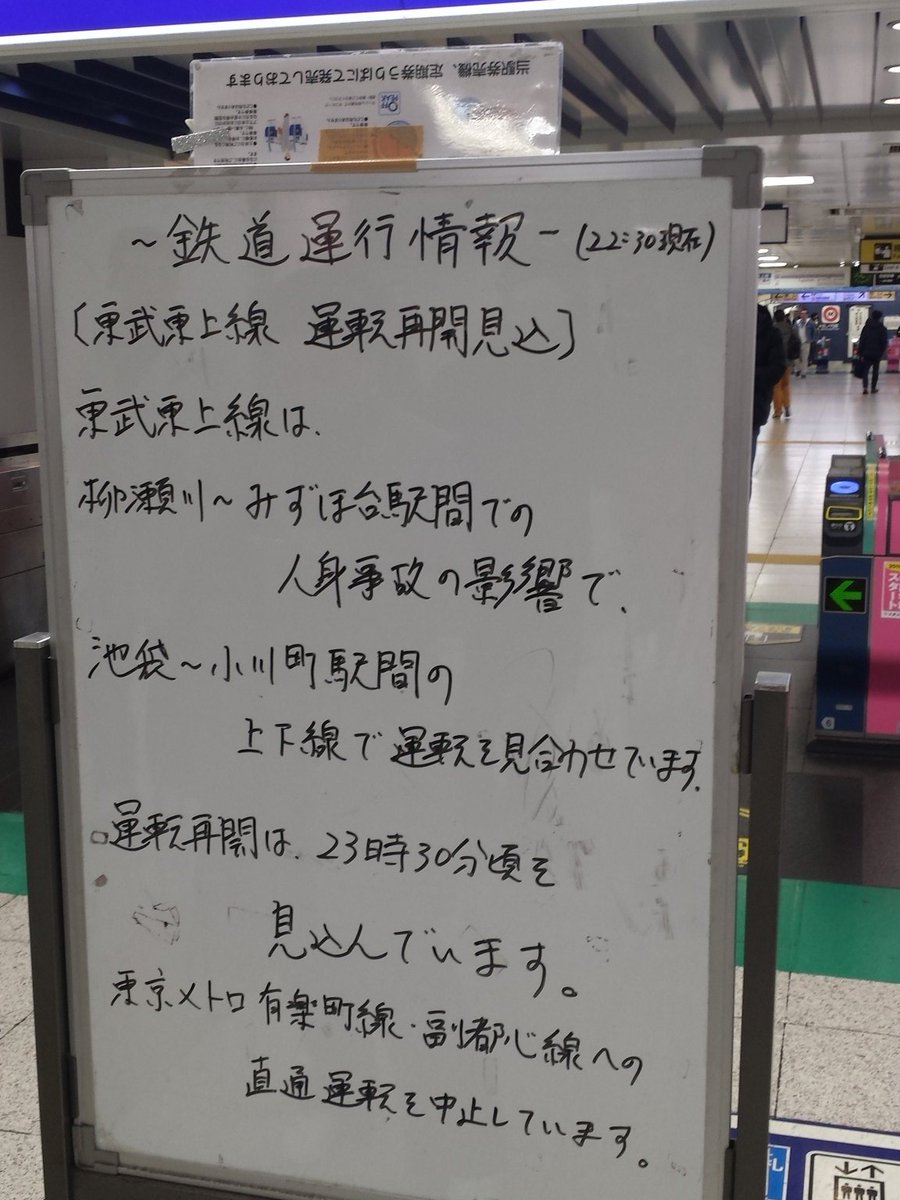 当駅券売機、定期券うりばにて発売しております
～鉄道運行情報～(22:30現在)
〔東武東上線 運転再開見込〕
東武東上線は、
柳瀬川～みずほ台駅間での
人身事故の影響で、
池袋～小川町駅間の
上下線で運転を見合わせています。
運転再開は、23時30分頃を
見込んでいます。
東京メトロ有楽町線・副都心線への
直通運転を中止しています。